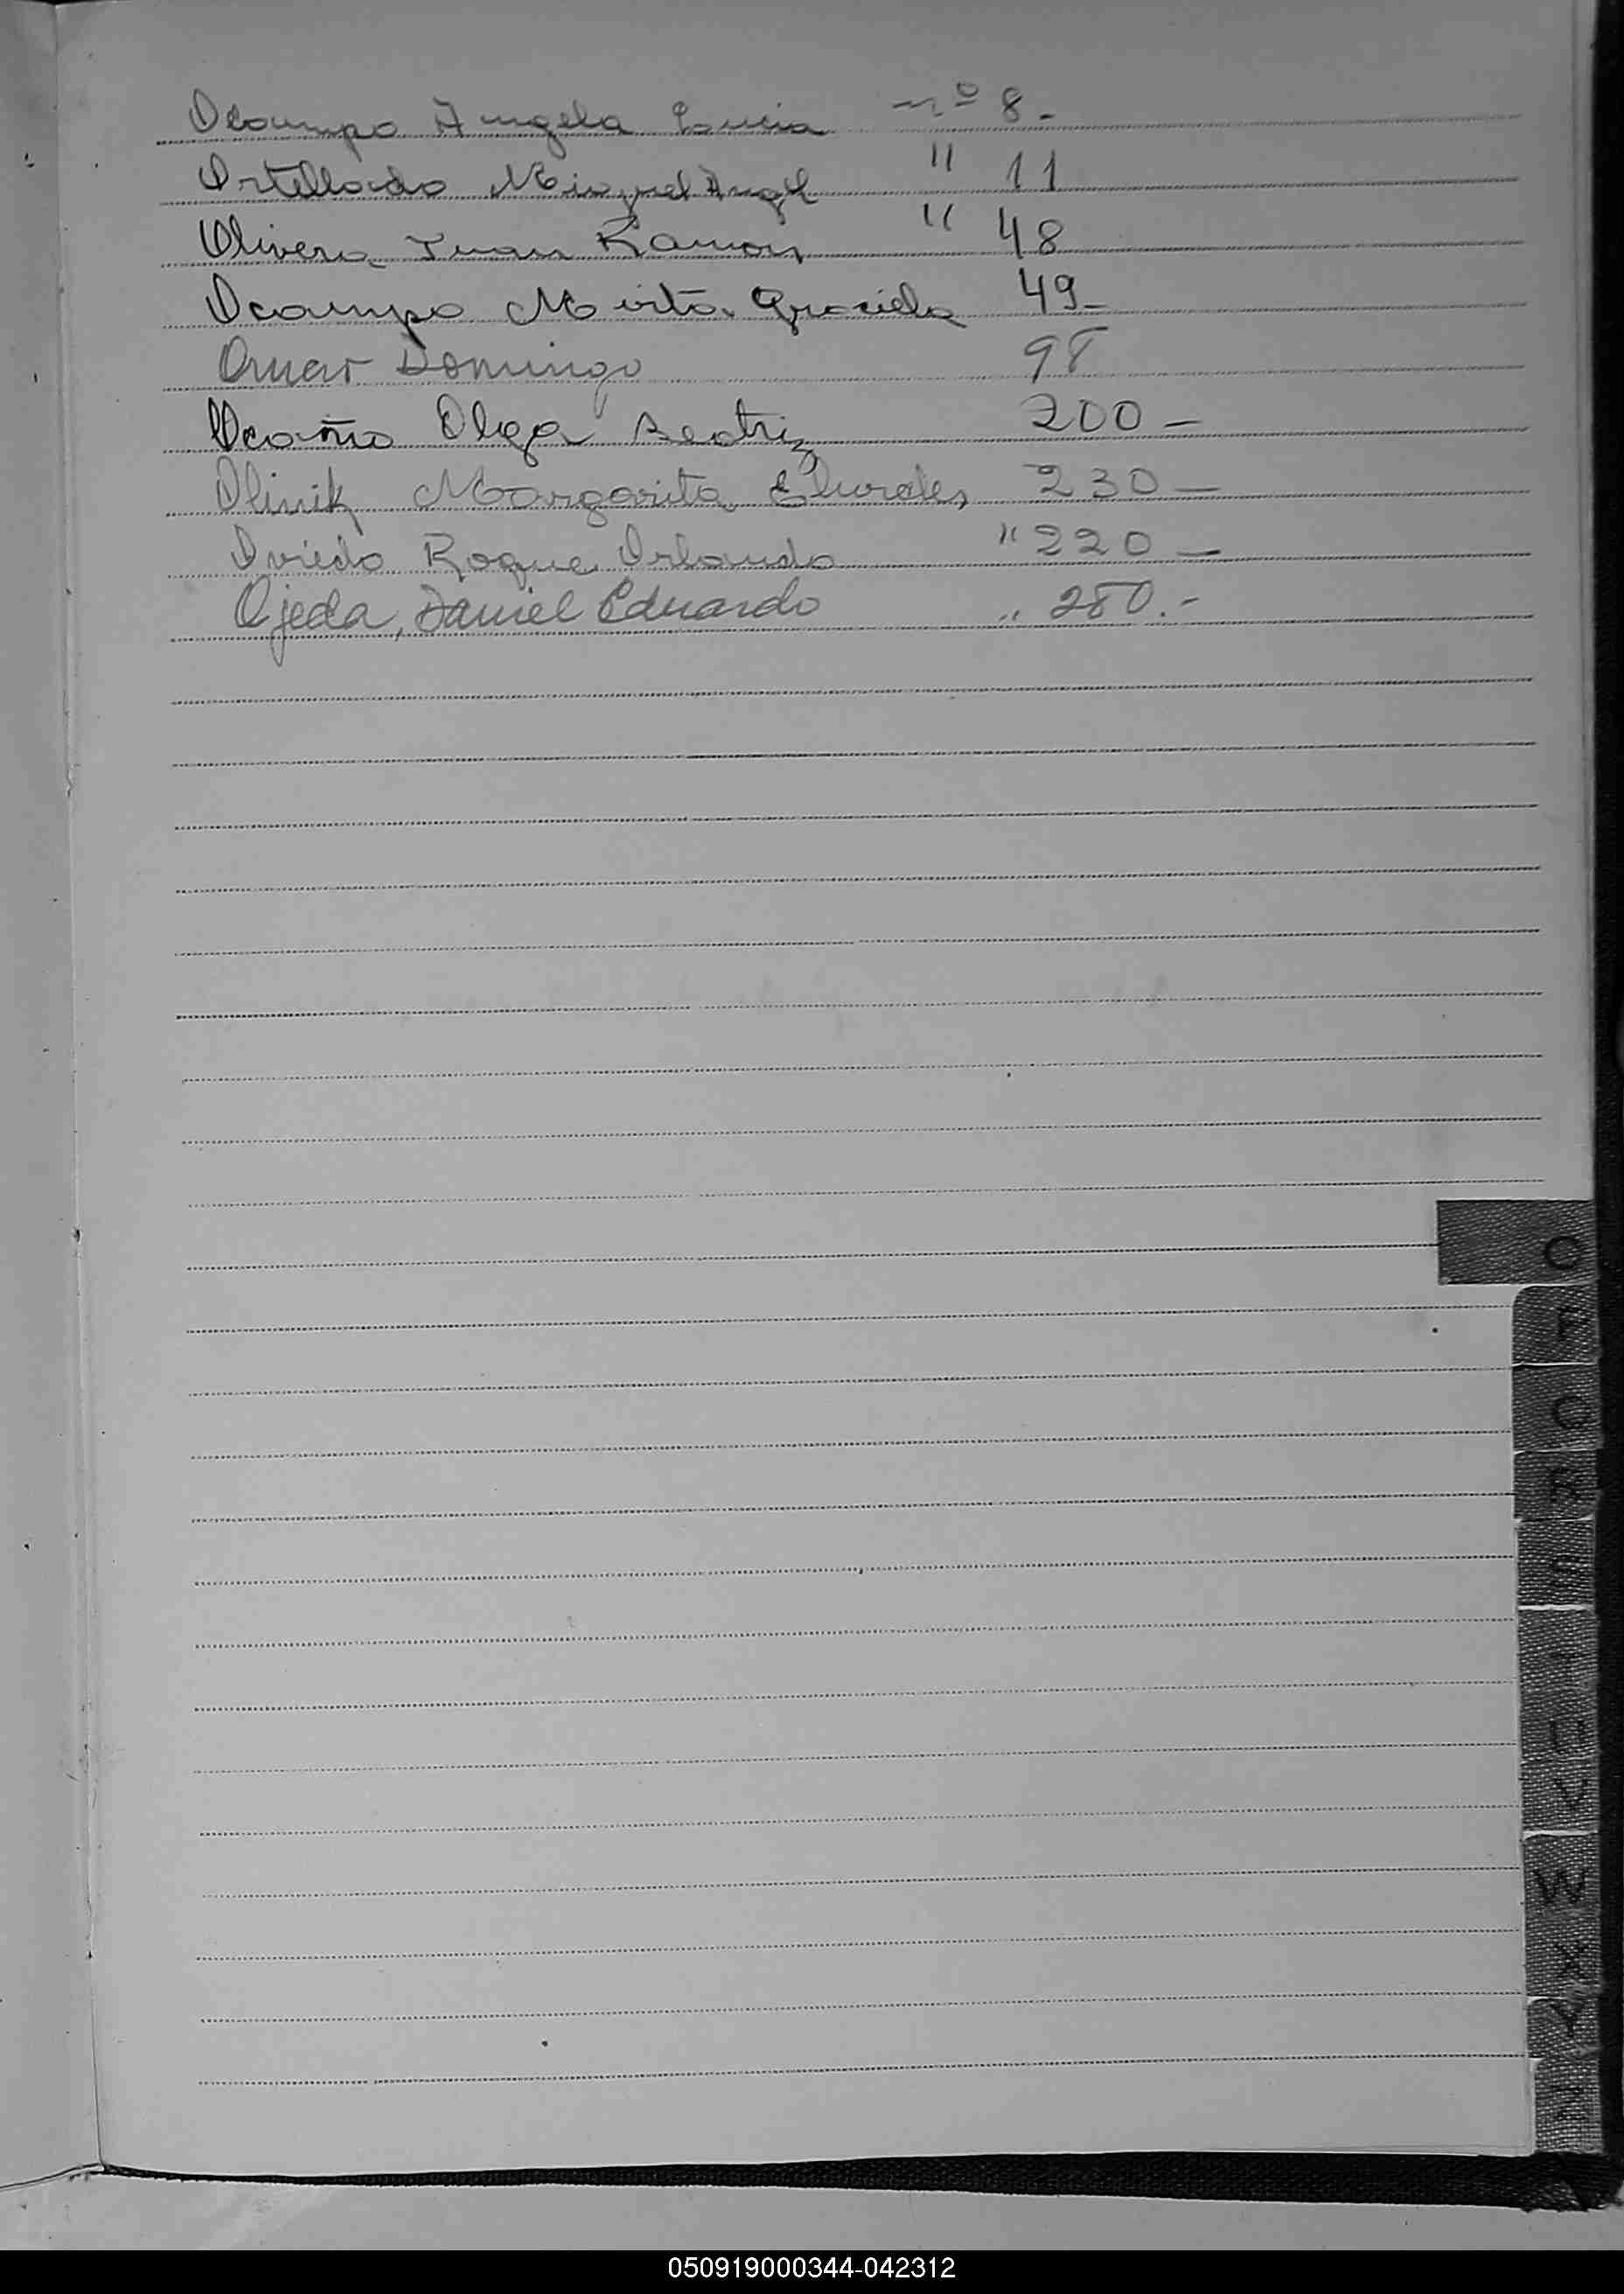 Ocampo Angela Lucia nº 8.-
Ortellado Miguel Angel " 11
Olivera Juan Ramon " 48
Ocampo Mirta Graciela 49-
Omar Domingo 98
Ocaño Olga Beatriz 200-
Olinik Margarita 230-
Oviedo Roque Orlando " 220-
Ojeda, Daniel Eduardo " 280.-
O
W
X
050919000344-042312